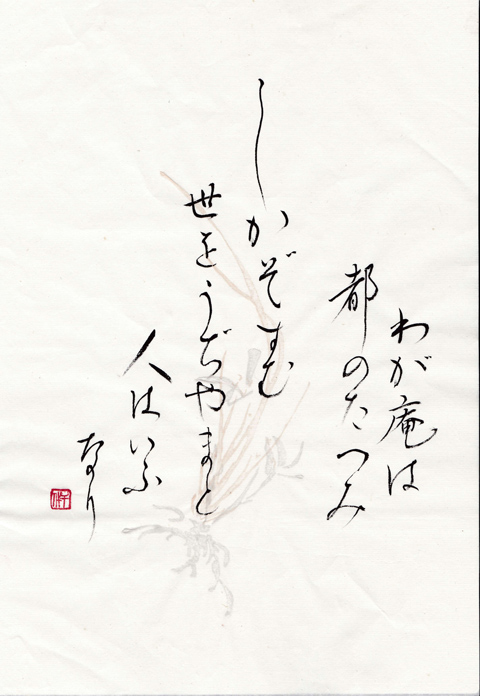 わが庵は
都のたつみ
しかぞすむ
世をうぢやまと
人はいふ
なり